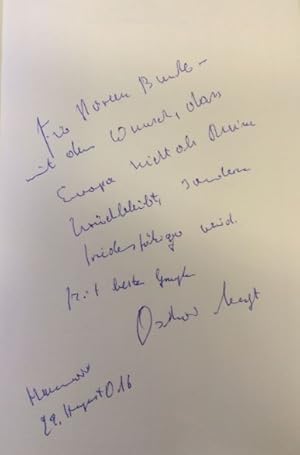 Für
mit dem Wunsch, dass
Europa nicht als Ruine
zurückbleibt, sondern
friedensfähiger wird.
Mit besten Grüßen
Oskar Negt
Hannover
22. August 016